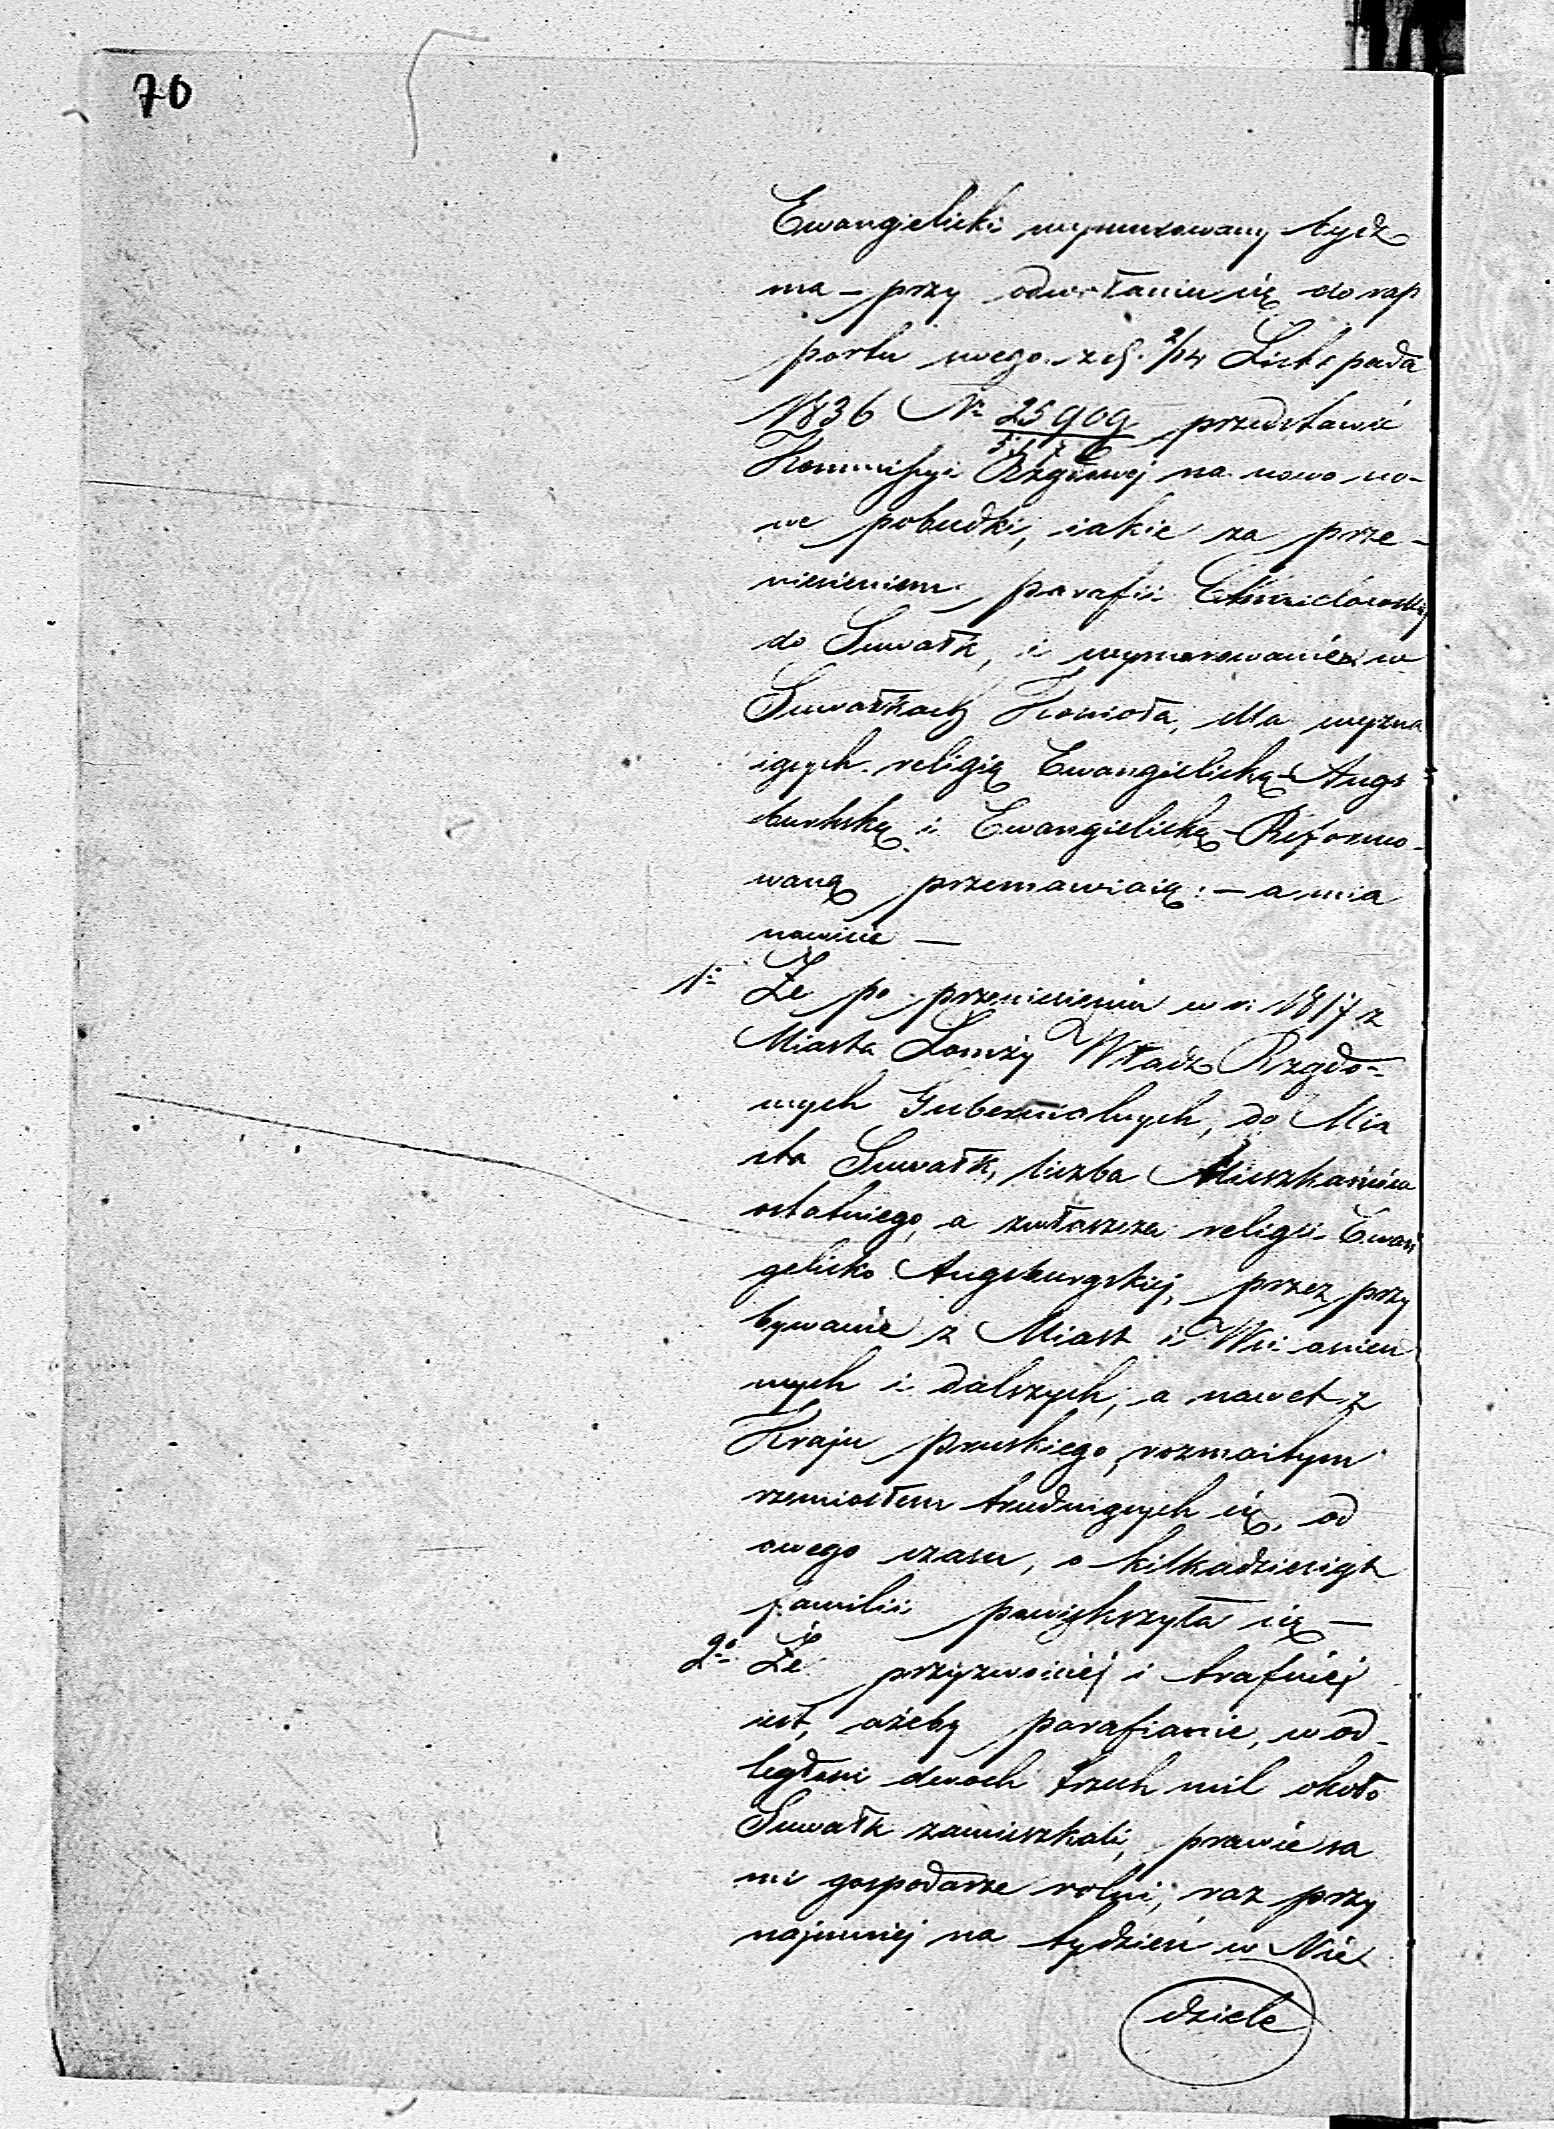 70
Ewangielicki wymurowany bydź
ma – przy odwołaniu się do rap
portu swego z d. 2/14 Listopada
1836 Nr 25909 przedstawić
Kommissyi Rządowej na nowo no-
we pobudki, iakie za prze-
niesieniem parafii
do Suwałk, i wymurowanie w
Suwałkach Kościoła, dla wyzna
iących religią Ewangielicką Augs
burską i Ewangielicką Reformo-
waną przemawiaią: – a mia
nowicie –
1o Że po przeniesieniu w r. 1817 z
Miasta Łomży Władz Rządo-
wych Gubernialnych, do Mia
sta Suwałk, liczba Mieszkańców
ostatniego, a zwłaszcza religii Ewan
gelicko Augsburgskiej, przez przy
bywanie z Miast i Wsi osien
nych i dalszych, a nawet z
Kraju pruskiego, rozmaitym
rzemiosłem trudniących się, od
owego czasu, o kilkadziesiąt
familii powiększyła się –
2o Że przyzwoiciej i trafniej
iest, ażeby parafianie, w od-
ległości dwóch trzech mil około
Suwałk zamieszkali, prawie sa
mi gospodarze rolni, raz przy
najmniej na tydzień w Nie
dziele